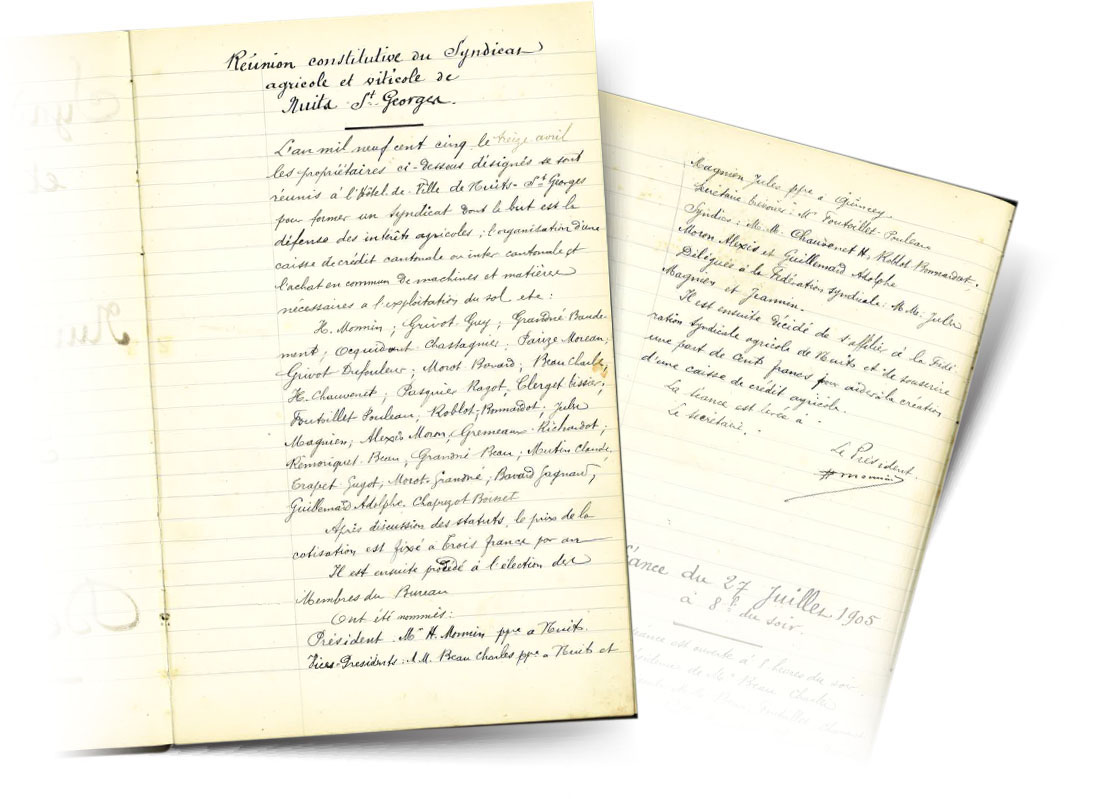 Réunion constitutive du Syndicat
agricole et viticole de
Nuits St Georges.
L'an mil neuf cent cinq le treize avril
les propriétaires ci-dessous désignés se sont
réunis à l'Hôtel de Ville de Nuits-St Georges
pour former un syndicat dont le but est la
défense des intérêts agricoles ; l'organisation d'une
caisse de crédit cantonale ou inter cantonale et
l'achat en commun de machines et matières
nécessaires a l'exploitation du sol etc :
H. Monnin ; Grivot Guy ; Grandné Baude-
ment ; Ocquident Chastagner ; Parize Moreau ;
Grivot Dufouleur ; Morot Bovard ; Beau Charles,
H. Chauvenet ; Pasquier Ragot, Clerget
Foutoillet Pouleau, Roblot-Bonnardot, Jules
Magnien, Alexis Moron, Gremeaux Richardot ;
Remoriquet Beau, Grandné Beau ; Mutin Claude,
Trapet Gugot, Morot Grandné, Bavard Gagnard,
Guillemard Adolphe. Chapuzot Boisset
Après discussion des statuts, le prix de la
cotisation est fixé à Trois francs par an
Il est ensuite procédé à l'élection des
Membres du Bureau
Ont été nommés :
Président. Mr H. Monnin ppre a Nuits.
Vices-Présidents : M.M. Beau Charles ppre a Nuits et
Magnien Jules ppre a Quincey.
Secrétaire trésorier : Mr Foutoillet-Pouleau
Syndics : M.M. Chauvenet H, Roblot Bonnardot,
Moron Alexis et Guillemard Adolphe
Délégués à la Fédération syndicale : M.M. Jules
Magnien et Jeannin.
Il est ensuite décidé de s'affilier à la Fédé-
ration syndicale agricole de Nuits et de souscrire
une part de Cent francs pour aider à la création
d'une caisse de crédit agricole.
La séance est levée à .
Le secrétaire.
Le Président.
H Monnin
Séance du 27 Juillet 1905
à 8 h du soir
séance est ouverte à 8 heures du soir
de Mr Beau Charles